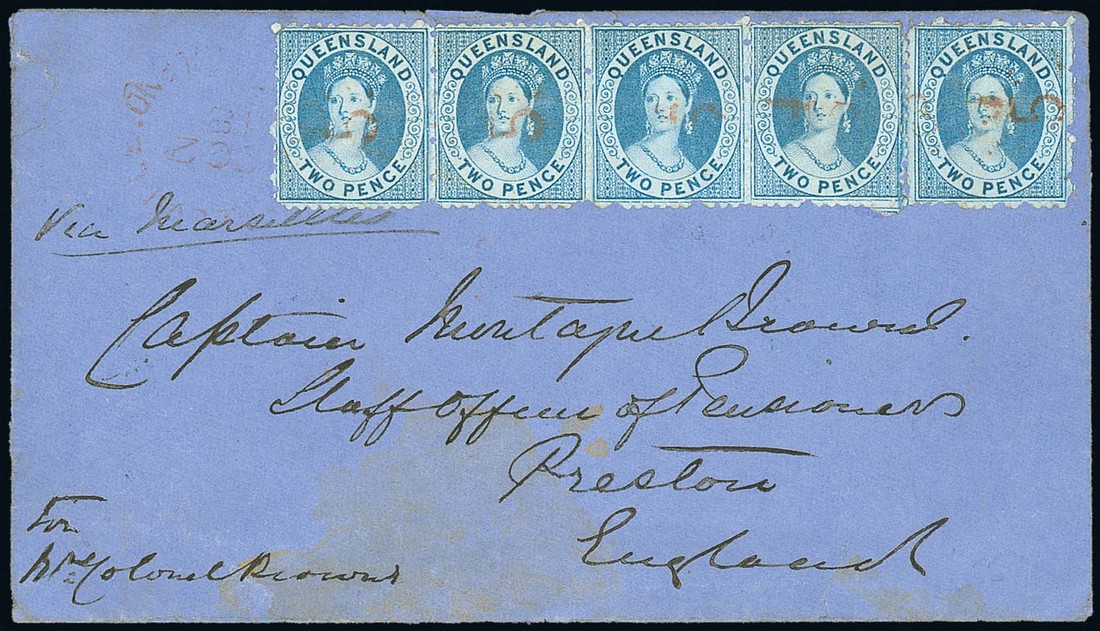 QUEENSLAND QUEENSLAND QUEENSLAND QUEENSLAND QUEENSLAND
TWO PENCE TWO PENCE TWO PENCE TWO PENCE TWO PENCE
Via Marseilles
Captain Montague Browne.
Staff Officer of Pensioners
Preston
England
For
Mrs Colonel Browne